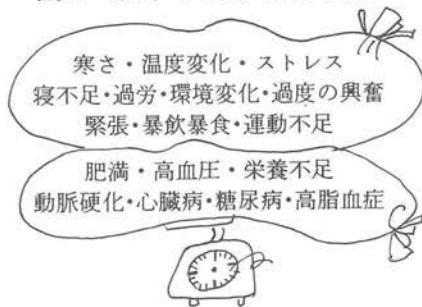 寒さ・温度変化・ストレス
寝不足・過労・環境変化・過度の興奮
緊張・暴飲暴食・運動不足
肥満・高血圧・栄養不足
動脈硬化・心臓病・糖尿病・高脂血症